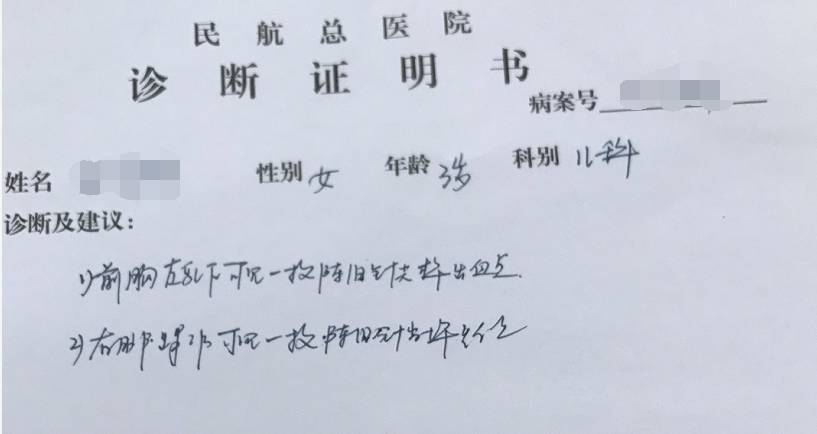 民航总医院
诊断证明书
病案号
姓名 性别 女 年龄 3岁 科别 儿科
诊断及建议：
1)前胸左乳下可见一枚陈旧针尖样出血点.
2)右 部可见一枚陈旧针尖样